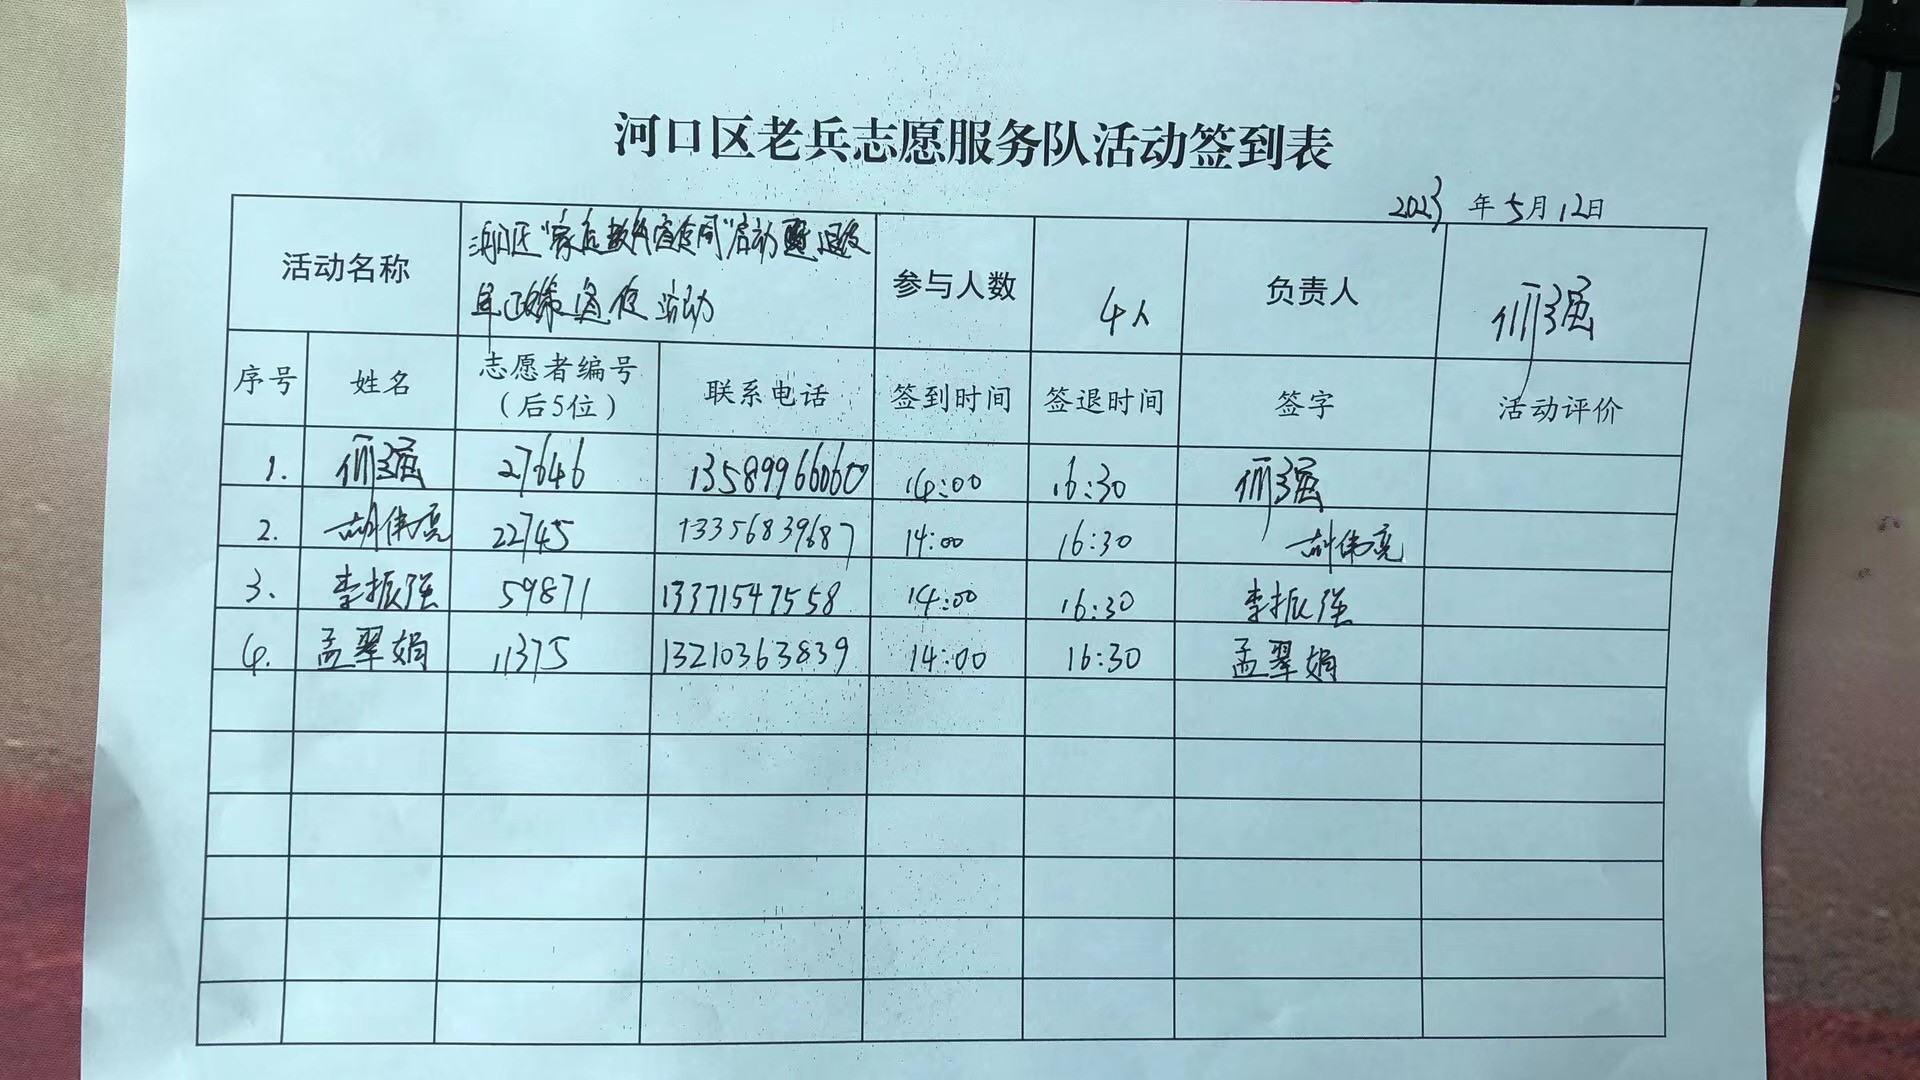 河口区老兵志愿服务队活动签到表
2023年5月12日
活动名称 河口区"家庭教育宣合同"启动暨退役 参与人数 4人 负责人 强
军政策宣传活动
序号 姓名 志愿者编号（后5位） 联系电话 签到时间 签退时间 签字 活动评价
1. 强 27646 13589966060 14:00 16:30 强
2. 胡伟亮 22745 13356839687 14:00 16:30 胡伟亮
3. 李振强 59871 13371547558 14:00 16:30 李振强
4. 孟翠娟 11375 13210363839 14:00 16:30 孟翠娟